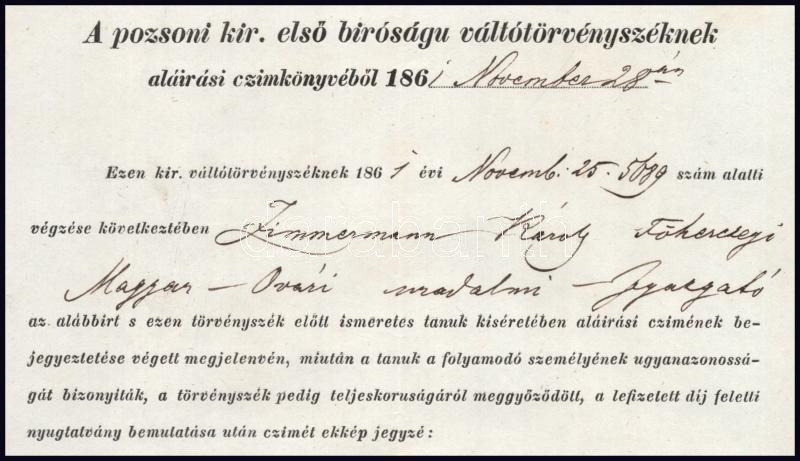 A pozsoni kir. első biróságu váltótörvényszéknek
aláirási czimkönyvéből 1861 November 28án
Ezen kir. váltótörvényszéknek 1861 évi Novemb: 25. 5089 szám alatti
végzése következtében Zimmermann Károly Főherczegi
Magyar-Ovári uradalmi Igazgató
az alábbirt s ezen törvényszék előtt ismeretes tanuk kiséretében aláirási czimének be-
jegyeztetése végett megjelenvén, miután a tanuk a folyamodó személyének ugyanazonossá-
gát bizonyiták, a törvényszék pedig teljeskoruságáról meggyőződött, a lefizetett díj feletti
nyugtatvány bemutatása után czimét ekkép jegyzé: